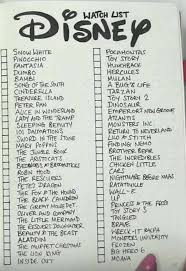 WATCH LIST
DISNEY
SNOW WHITE
PINOCCHIO
FANTASIA
DUMBO
BAMBI
SONG OF THE SOUTH
CINDERELLA
TREASURE ISLAND
PETER PAN
ALICE IN WONDERLAND
LADY AND THE TRAMP
SLEEPING BEAUTY
101 DALMATIONS
SWORD IN THE STONE
MARY POPPINS
THE JUNGLE BOOK
THE ARISTOCATS
BEDKNOBS & BROOMSTICKS
ROBIN HOOD
THE RESCUERS
PETE'S DRAGON
THE FOX & THE HOUND
THE BLACK CAULDRON
THE GREAT MOUSE DET.
OLIVER AND COMPANY
THE LITTLE MERMAID
THE RESCUERS DOWNUNDER
BEAUTY & THE BEAST
ALADDIN
THE MUPPET CHRISTMAS
THE LION KING
INSIDE OUT
POCAHONTAS
TOY STORY
HUNCHBACK
HERCULES
MULAN
A BUG'S LIFE
TARZAN
TOY STORY 2
DINOSAUR
EMPEROR'S NEW GROOVE
ATLANTIS
MONSTERS INC
RETURN TO NEVERLAND
LILO & STITCH
FINDING NEMO
BROTHER BEAR
THE INCREDIBLES
CHICKEN LITTLE
CARS
NIGHTMARE BEFORE
RATATOUILLE
WALL-E
UP
PRINCESS & THE FROG
TOY STORY 3
TANGLED
BRAVE
WRECK-IT RALPH
MONSTERS UNIVERSITY
FROZEN
BIG HERO 6
MOANA